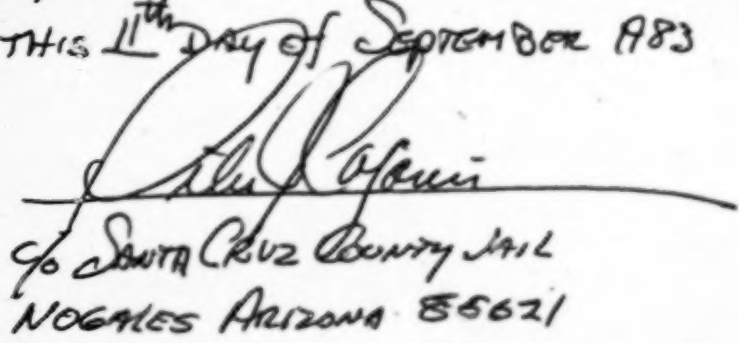 THIS 11th DAY Of SEPTEMBER 1983
c/o SANTA CRUZ COUNTY JAIL
NOGALES ARIZONA 85621